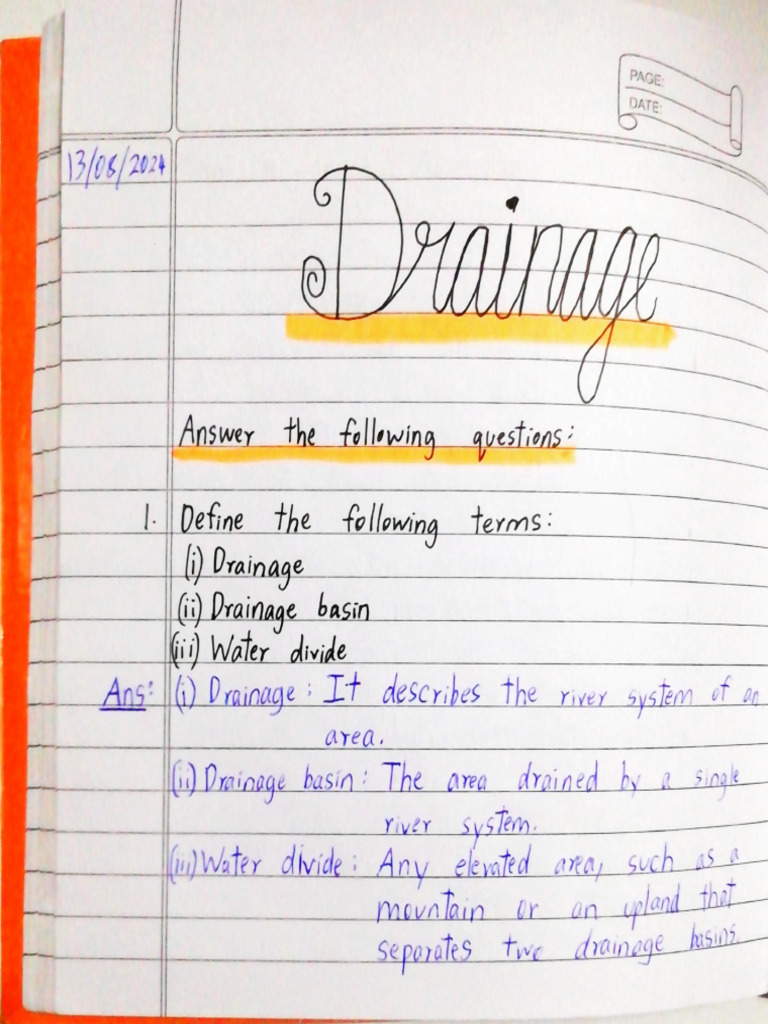 PAGE:
DATE:
13/08/2024
Drainage
Answer the following questions:
1. Define the following terms:
(i) Drainage
(ii) Drainage basin
(iii) Water divide
Ans: (i) Drainage: It describes the river system of an
area.
(ii) Drainage basin: The area drained by a single
river system.
(iii) Water divide: Any elevated area, such as a
mountain or an upland that
separates two drainage basins.